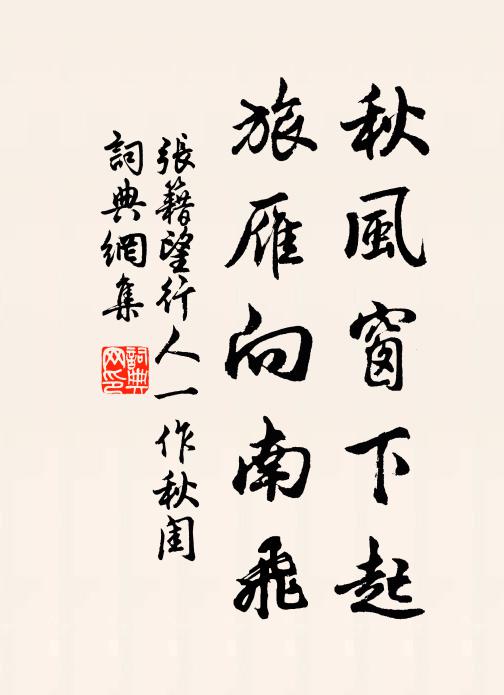 秋風窗下起
旅雁向南飛
張籍望行人一作秋閨
詞典網集
詞典網印